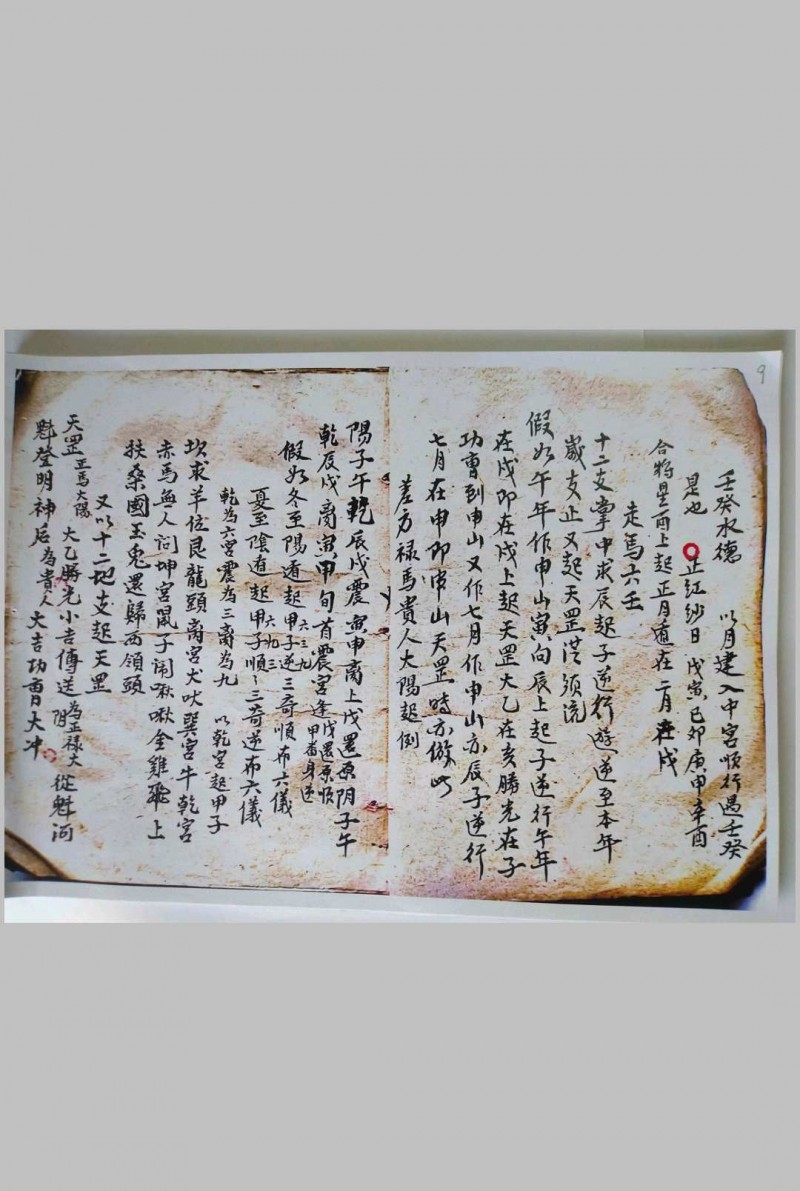 9
壬癸水德　以月建入中宮順行遇壬癸
是也　正紅紗日　戊寅己卯庚申辛酉
合將星前上起正月逆在二月在戌
走馬六壬
十二支掌中求辰起子逆行遊逆至本年
歲支止又起天罡従須流
假如午年作申山寅向辰上起子逆行午年
在戌即在戌上起天罡太乙在亥勝光在子
功曹到申山又作七月作申山亦辰子逆行
七月在申即申山天罡時亦倣此
差方禄馬貴人太陽起例
陽子午乾辰戌震寅申离上戊還原阴子午
乾辰戌离寅申旬首震宮逢戊還原順
甲首身逆
假如冬至陽遁起甲子逆三奇順布六儀
六三九
夏至陰遁起甲子順三奇逆布六儀
六九三
乾為六宮震為三离為九　以乾宮起甲子
坎求羊位艮龍頭离宮犬吠巽宮牛乾宮
赤馬無人问坤宮鼠子闹啾啾金雞飛上
扶桑國玉兔還歸西領頭
又以十二地支起天罡
天罡正馬太陽　太乙勝光小吉傳送為正禄太阴　從魁河
魁登明神后為貴人　大吉功曹大冲